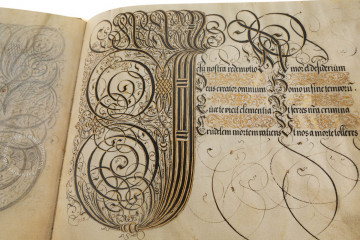 Jhu nostra redemptio Amor et desiderium
Deus creator omnium Homo in fine temporu
Que te vicit clementia Ut ferres nra crimina
Crudelem mortem patiens Ut nos a morte tolleres